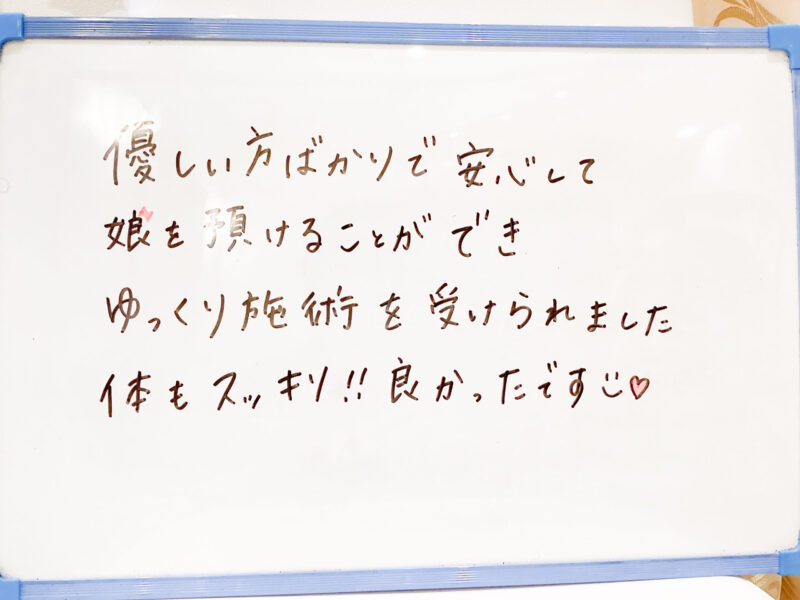 優しい方ばかりで安心して
娘を預けることができ
ゆっくり施術を受けられました
体もスッキリ!!良かったです